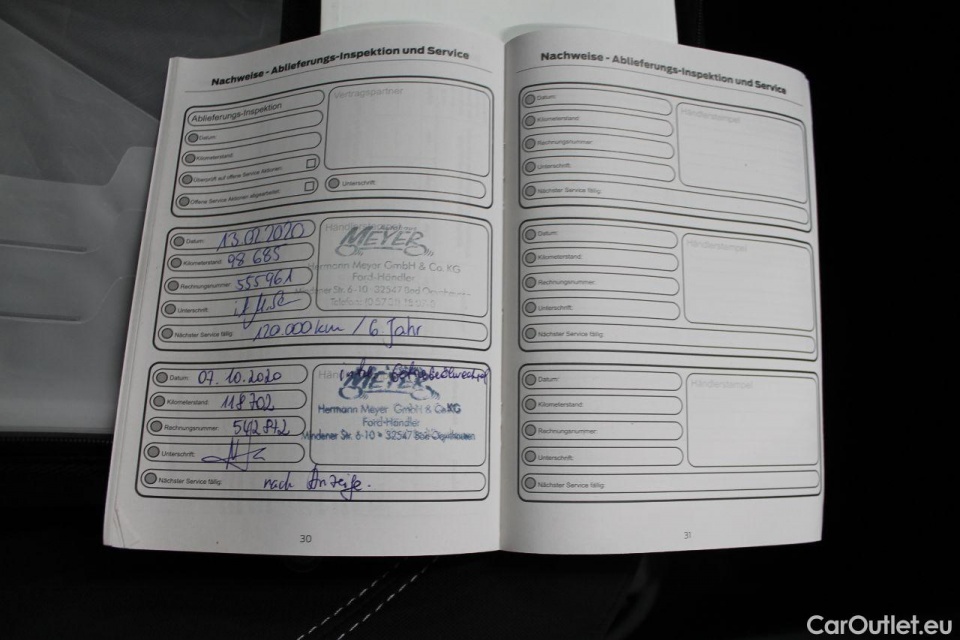 Nachweise - Ablieferungs-Inspektion und Service
Ablieferungs-Inspektion
Vertragspartner
Datum:
Kilometerstand:
Überprüft auf offene Service Aktionen:
Offene Service Aktionen abgearbeitet:
Unterschrift:
Datum: 13.02.2020
Kilometerstand: 98 685
Rechnungsnummer: 555961
Unterschrift:
Nächster Service fällig: 120.000 km / 6. Jahr
MEYER
Hermann Meyer GmbH & Co. KG
Ford-Händler
Mindener Str. 6-10 · 32547 Bad Oeynhausen
Datum: 07.10.2020
Kilometerstand: 118702
Rechnungsnummer: 542872
Unterschrift:
Nächster Service fällig: nach Anzeige.
MEYER
Hermann Meyer GmbH & Co. KG
Ford-Händler
Mindener Str. 6-10 • 32547 Bad Oeynhausen
30
Nachweise - Ablieferungs-Inspektion und Service
Datum:
Kilometerstand:
Rechnungsnummer:
Unterschrift:
Nächster Service fällig:
Händlerstempel
Datum:
Kilometerstand:
Rechnungsnummer:
Unterschrift:
Nächster Service fällig:
Händlerstempel
Datum:
Kilometerstand:
Rechnungsnummer:
Unterschrift:
Nächster Service fällig:
Händlerstempel
31
CarOutlet.eu